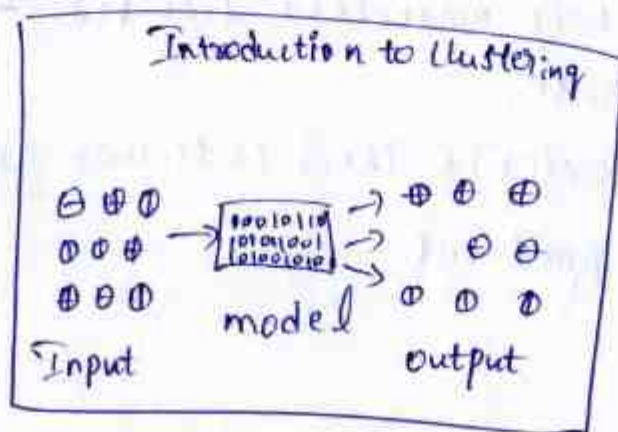 Introduction to Clustering
10010110
01011001
01001010
model
Input
output